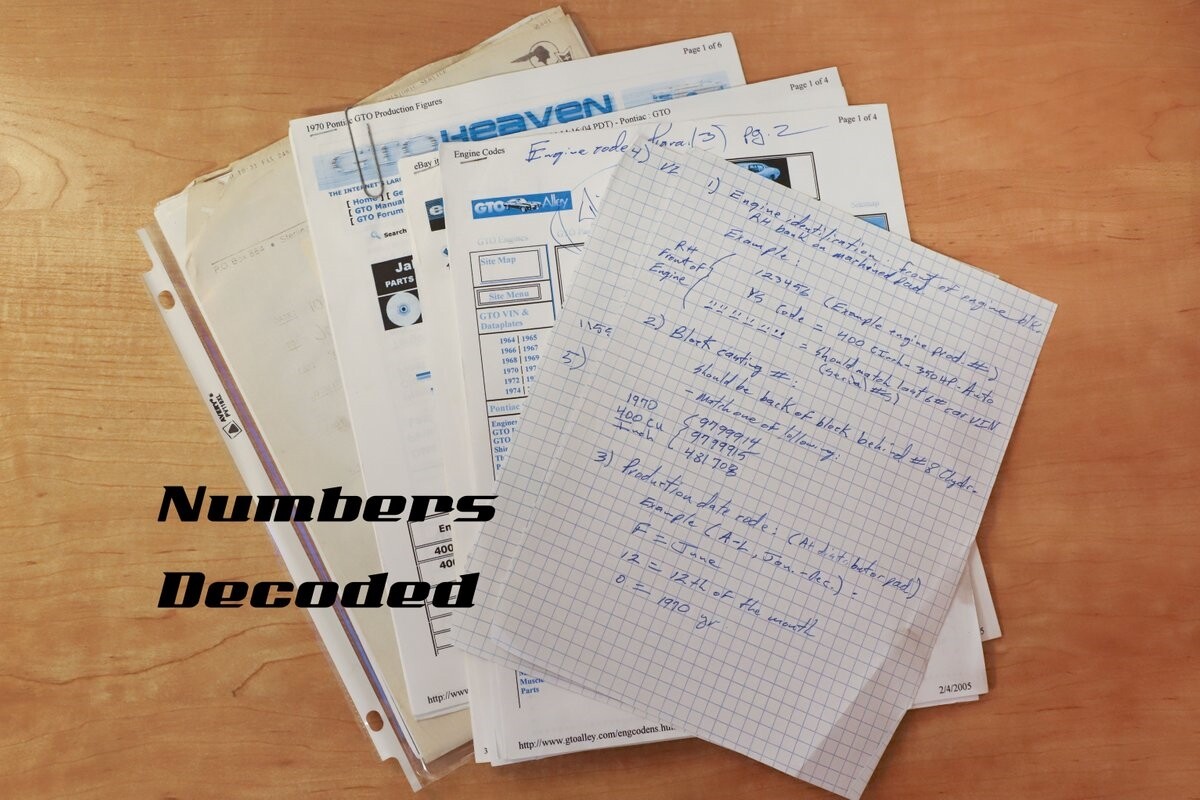 Page 1 of 6
1970 Pontiac GTO Production Figures
Heaven
THE INTERNET'S
[ Home ] [
[ GTO Manual
[ GTO Forum
Search
PARTS
eBay
Page 1 of 4
PDT) - Pontiac : GTO
Page 1 of 4
Engine Codes
Engine code para. (3) pg. 2
GTO Alley
GTO Engines
Sitemap
Site Map
Site Menu
GTO VIN &
Dataplates
1964 | 1965
1966 | 1967
1968 | 1969
1970
1972
1974
Pontiac
GTO
P.O. Box
AVERY®
4)
1) Engine identification: front of engine blk.
RH bank on machined pad
Example:
RH
Front of
Engine
123456 (Example engine prod. #)
YS Code = 400 CInch - 350HP - Auto
= should match last 6 # car VIN
(serial #s)
2) Block casting #:
should be back of block behind #8 Clyder.
- Match one of following:
1970
400 cu
Inch
9799914
9799915
481708
5)
3) Production date code: (At distributor pad)
Example (A-L, Jan.-Dec.):
F = June
12 = 12th of the month
0 = 1970 yr
Numbers
Decoded
En
400
400
Muscle
Parts
http://www
3
http://www.gtoalley.com/engcodens.
2/4/2005